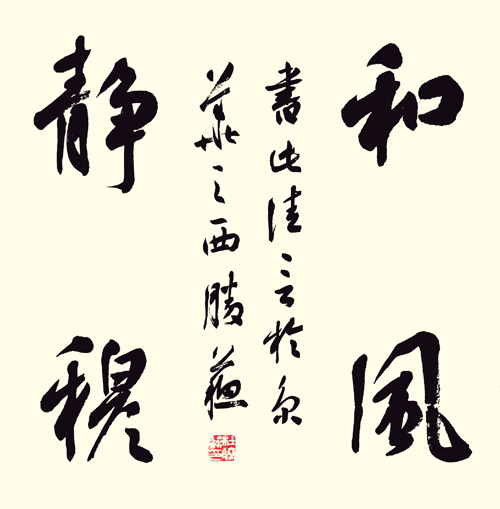 和風
書此佳言於京
華之西勝
静穆